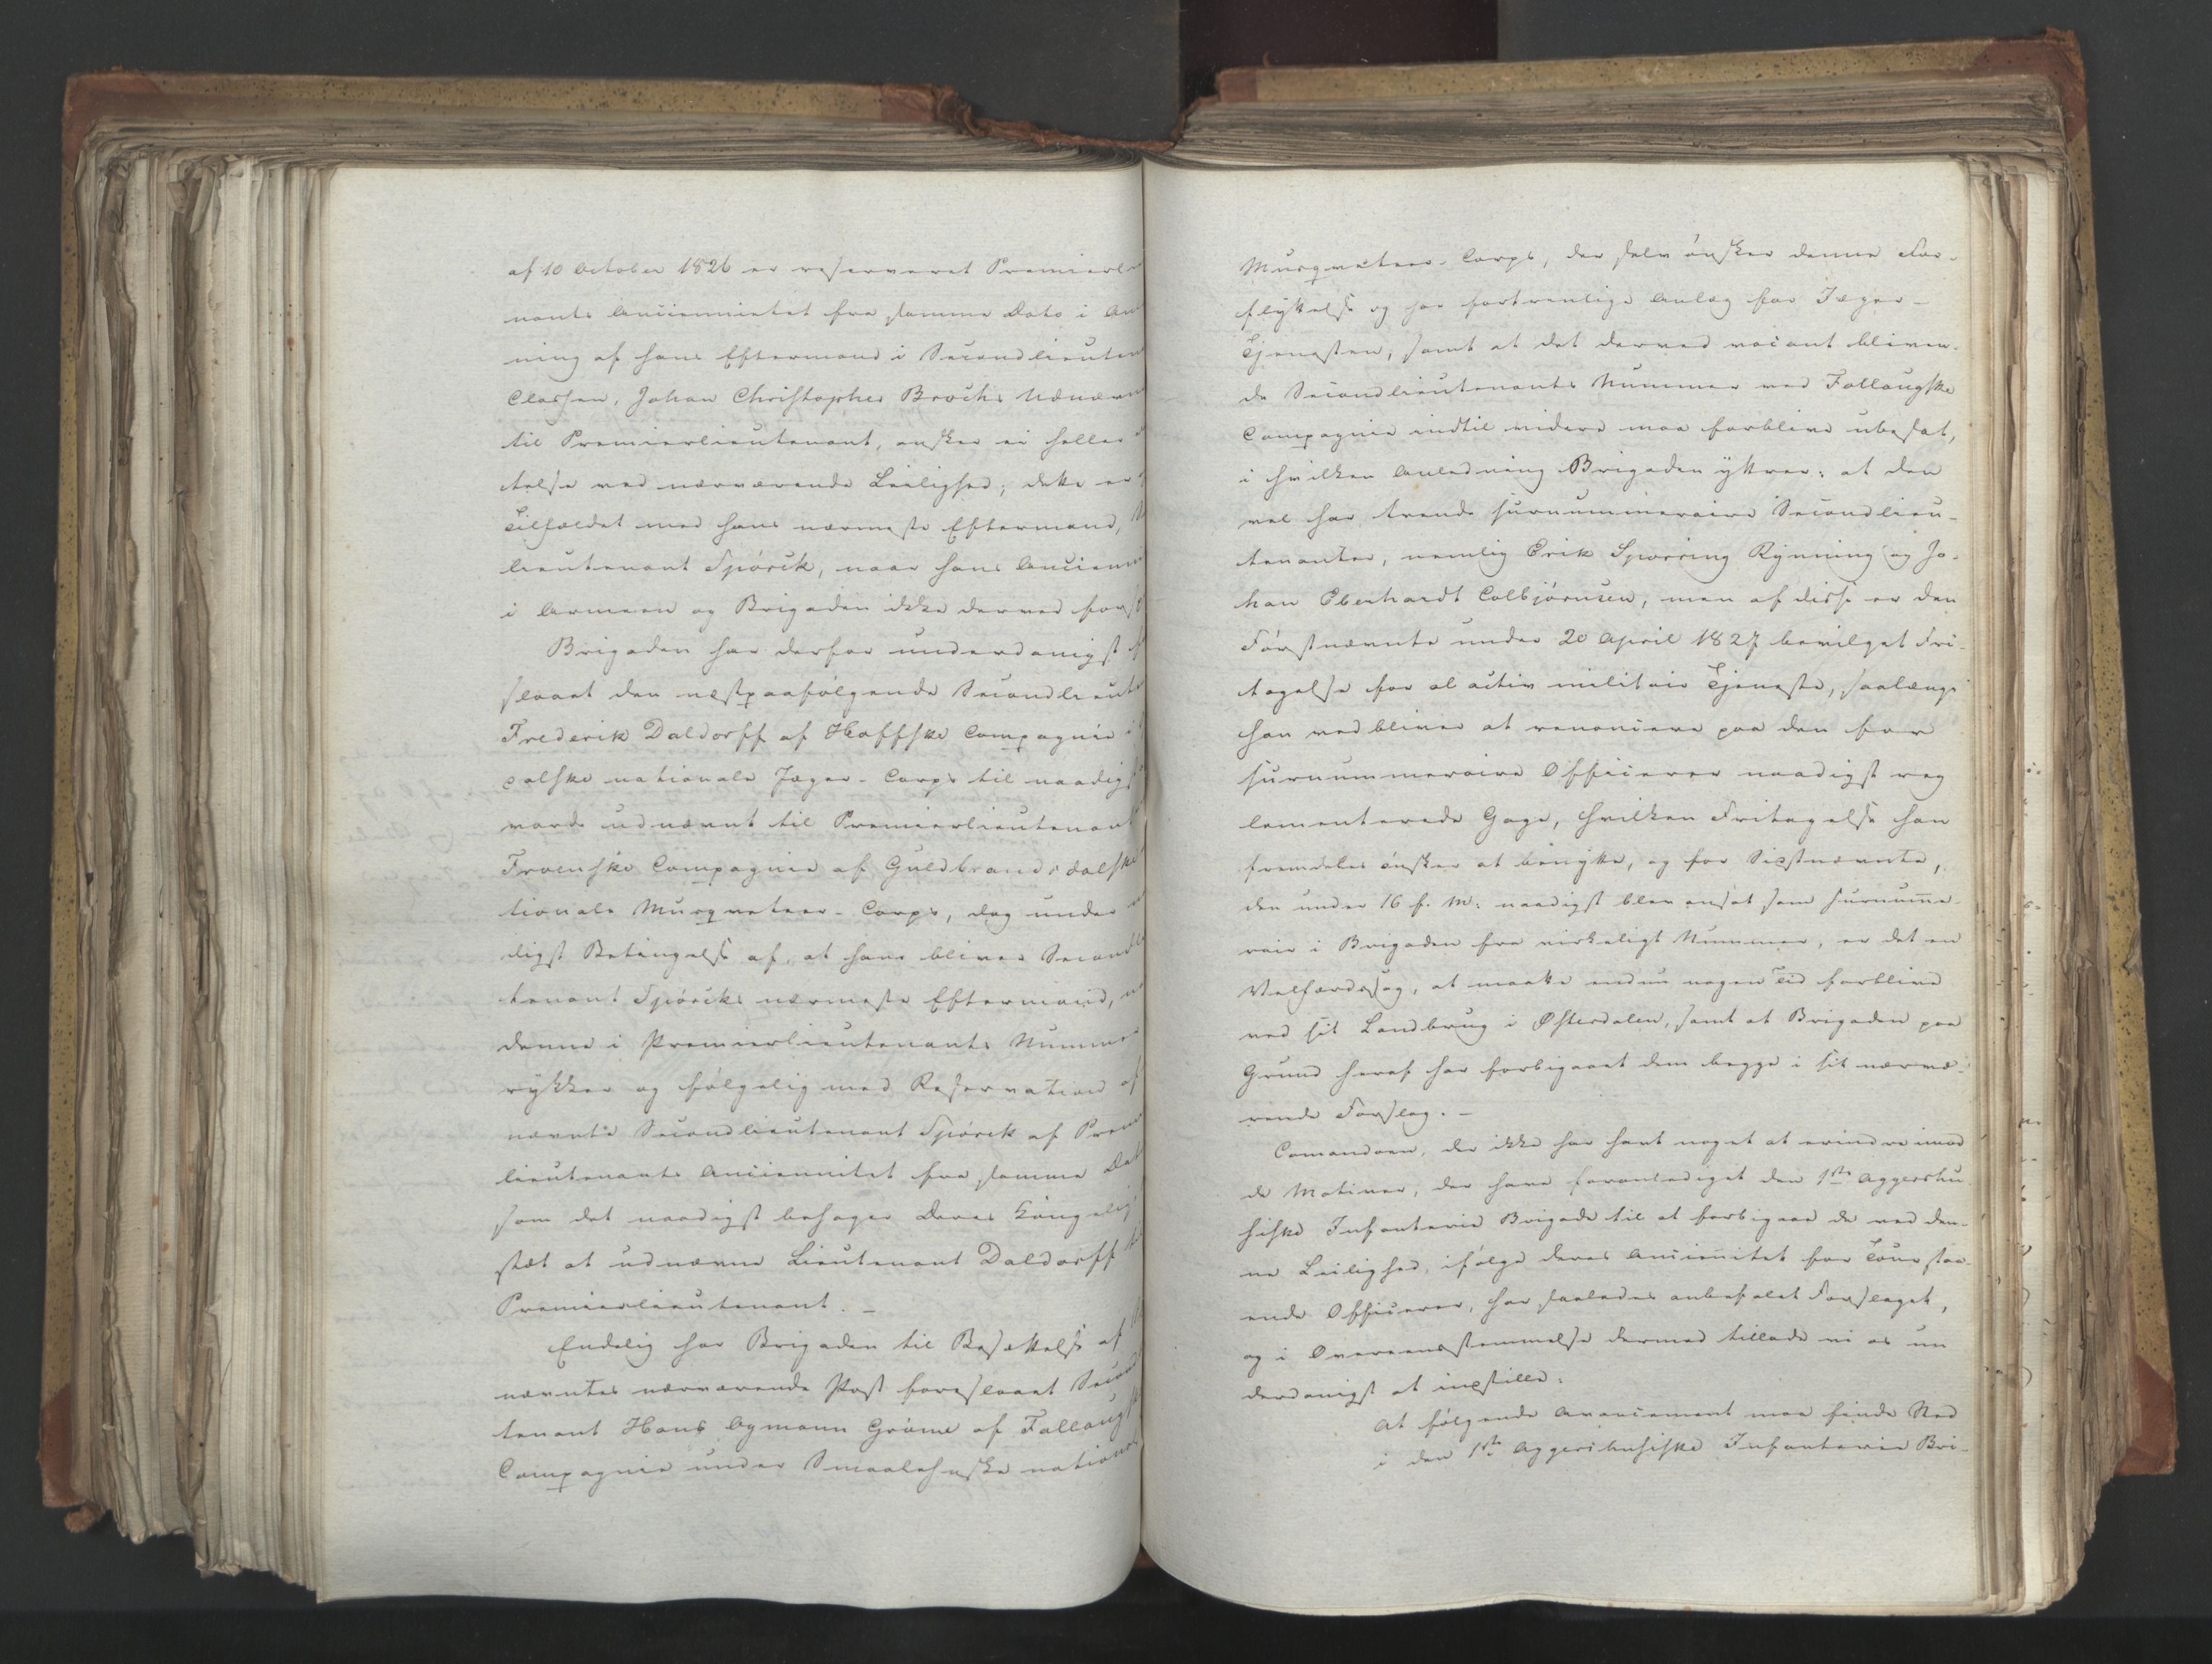 af 10 October 1826 er reserveret Premierl
nants Anciennitet fra samme Dato i An
ning af hans Eftermand i Secondlieuten
Classen, Johan Christopher Brochs Udnævn
til Premierlieutenant, ønsker ei heller
telse ved nærværende Leilighed; dette er
Tilfældet med hans nærmeste Eftermand,
lieutenant Spörck, naar hans Ancienni
i Armeen og Brigaden ikke derved for
Brigaden har derfor underdanigst
slaaet den næstpaafølgende Secondlieute
Frederik Daldorff af Hoffske Compagnie i
dalske nationale Jæger-Corps til naadigst
vorde udnævnt til Premierlieutenant
Froenske Compagnie af Guldbrandsdalske
tionale Musqueteer-Corps, dog under
digst Betingelse af, at hans bliver Secondl
tenant Spörcks nærmeste Eftermand,
denne i Premierlieutenants Nummer
rykker og følgelig med Reservation af
nævnte Secondlieutenant Spörck af Prem
lieutenants Anciennitet fra samme Dat
som det naadigst behager Deres Kongelig
stæt at udnævne Lieutenant Daldorff til
Premierlieutenant. –
Endelig har Brigaden til Besættelse af
nævntes nærværende Post foreslaaet Secon
tenant Hans Aymann Gröme af Fallaugs
Compagnie under Smaalehnske nationa
Musqueteer-Corps, der selv ønsker denne For-
flyttelse og har fortrinlige Anlæg for Jæger-
Tjenesten, samt at det derved vacant bliven-
de Secondlieutenants Nummer ved Fallaugske
Compagnie indtil videre maa forblive ubesat,
i hvilken Anledning Brigaden yttrer: at den
vel har trende surnummeraire Secondlieu-
tenanter, nemlig Erik Sporring Rynning og Jo-
han Eberhardt Colbjörnsen, men af disse er den
Førstnævnte under 20 April 1827 bevilget Fri-
tagelse for al activ militair Tjeneste, saalænge
han vedbliver at renoncere paa den for
surnummeraire Officerer naadigst reg
lementerede Gage, hvilken Fritagelse han
fremdeles ønsker at benytte, og for Sidstnævnte,
den under 16 f. M: naadigst blev ansat som surnumme-
rair i Brigaden fra virkeligt Nummer, er det en
Velfærdssag, at maatte endnu nogen Tid forblive
ved sit Landbrug i Østerdalen, samt at Brigaden paa
Grund heraf har forbigaaet dem begge i sit nærvæ-
rende Forslag. –
Comandoen, der ikke har havt noget at erindre imod
de Motiver, der have foranlediget den 1ste Aggershu
siske Infanterie Brigade til at forbigaae de ved den-
ne Leilighed, ifølge deres Anciennitet for Tour staa-
ende Officerer, har saaledes anbefalet Forslaget,
og i Overeensstemmelse dermed tillade vi os un
derdanigst at indstille:
At følgende Avancement maa finde Sted
i den 1ste Aggershusiske Infanterie Bri-